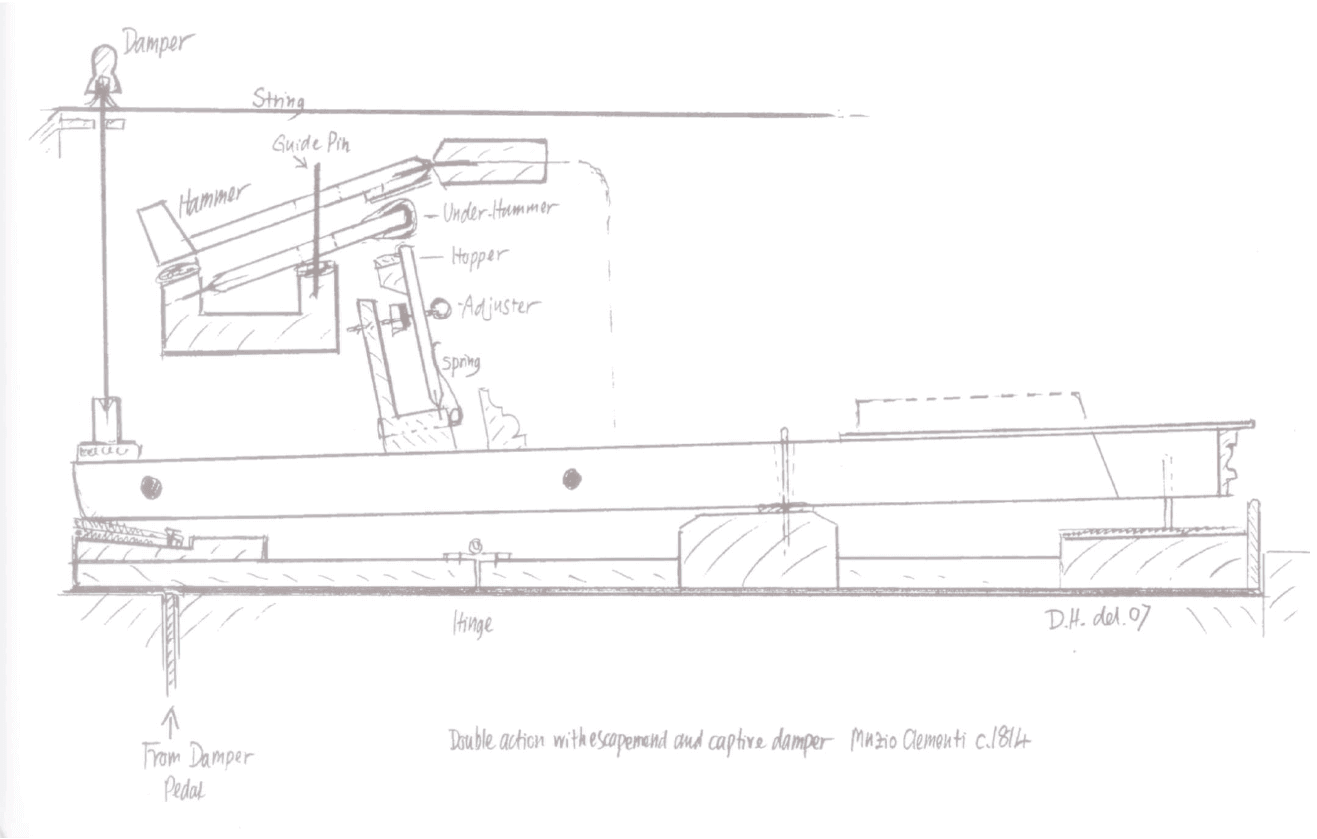 Damper
String
Guide Pin
Hammer
Under-Hammer
Hopper
-Adjuster
Spring
Hinge
D.H. del. 07
From Damper
Pedal
Double action with escapement and captive damper Muzio Clementi c.1814